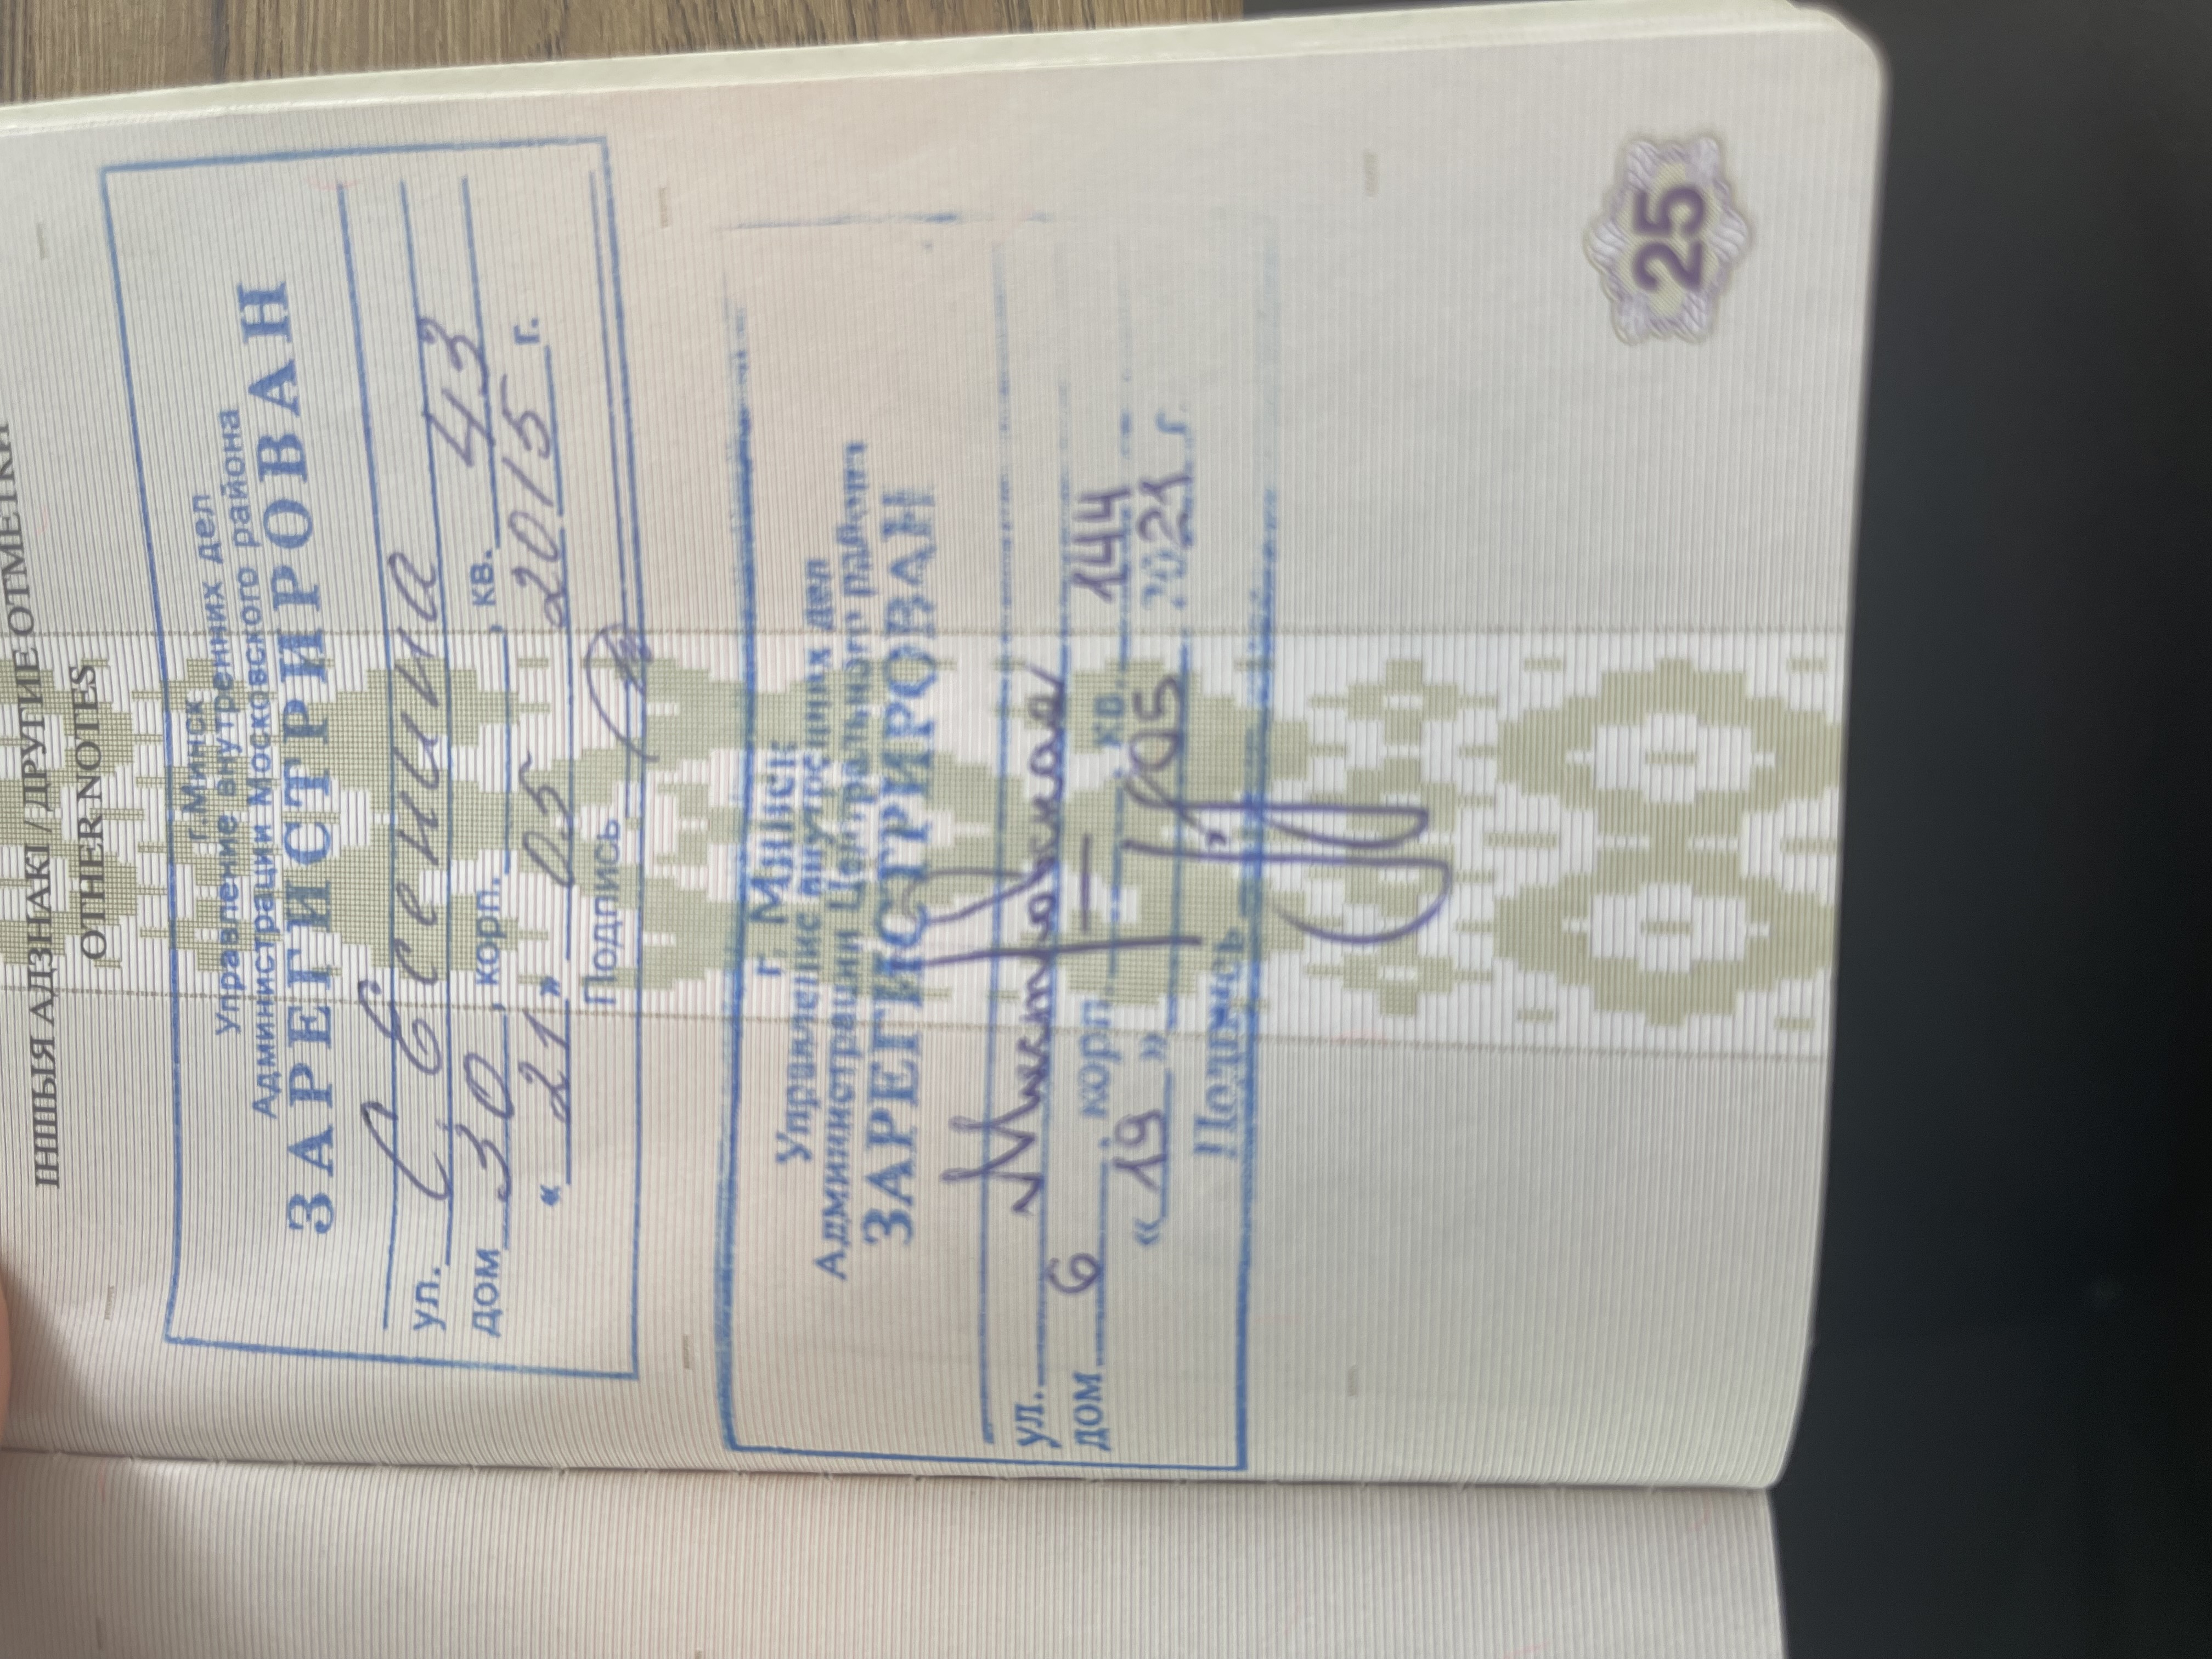 ІНШЫЯ АДЗНАКІ / ДРУГИЕ ОТМЕТКИ
OTHER NOTES
г.Минск
Управление внутренних дел
Администрации Московского района
ЗАРЕГИСТРИРОВАН
ул. С. Есенина
дом 30, корп. , кв. 43
« 21 » 05 2015 г.
Подпись
г. Минск
Управление внутренних дел
Администрации Центрального района
ЗАРЕГИСТРИРОВАН
ул.
дом 6, корп. – , кв. 144
« 19 » 05 2021 г.
Подпись
25